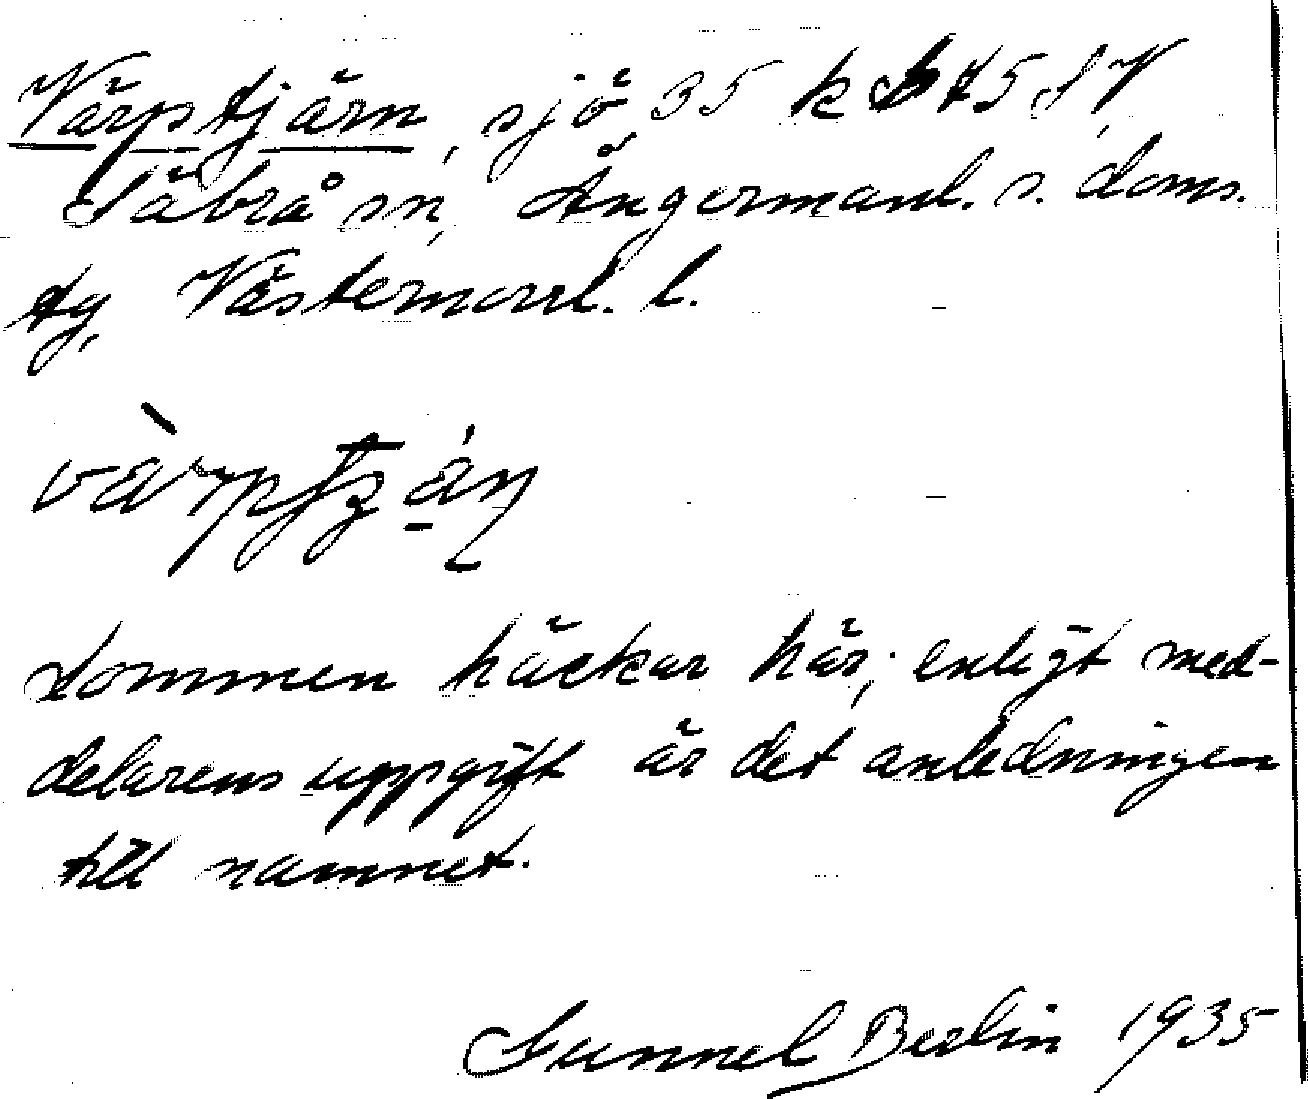 Värptjärn, sjö, 35 k 75 SV,
Säbrå sn, Ångermanl. s. doms.
tg, Västernorrl. l.
Lommen häckar här; enligt med-
delarens uppgift är det anledningen
till namnet.
Gunnel Berlin 1935